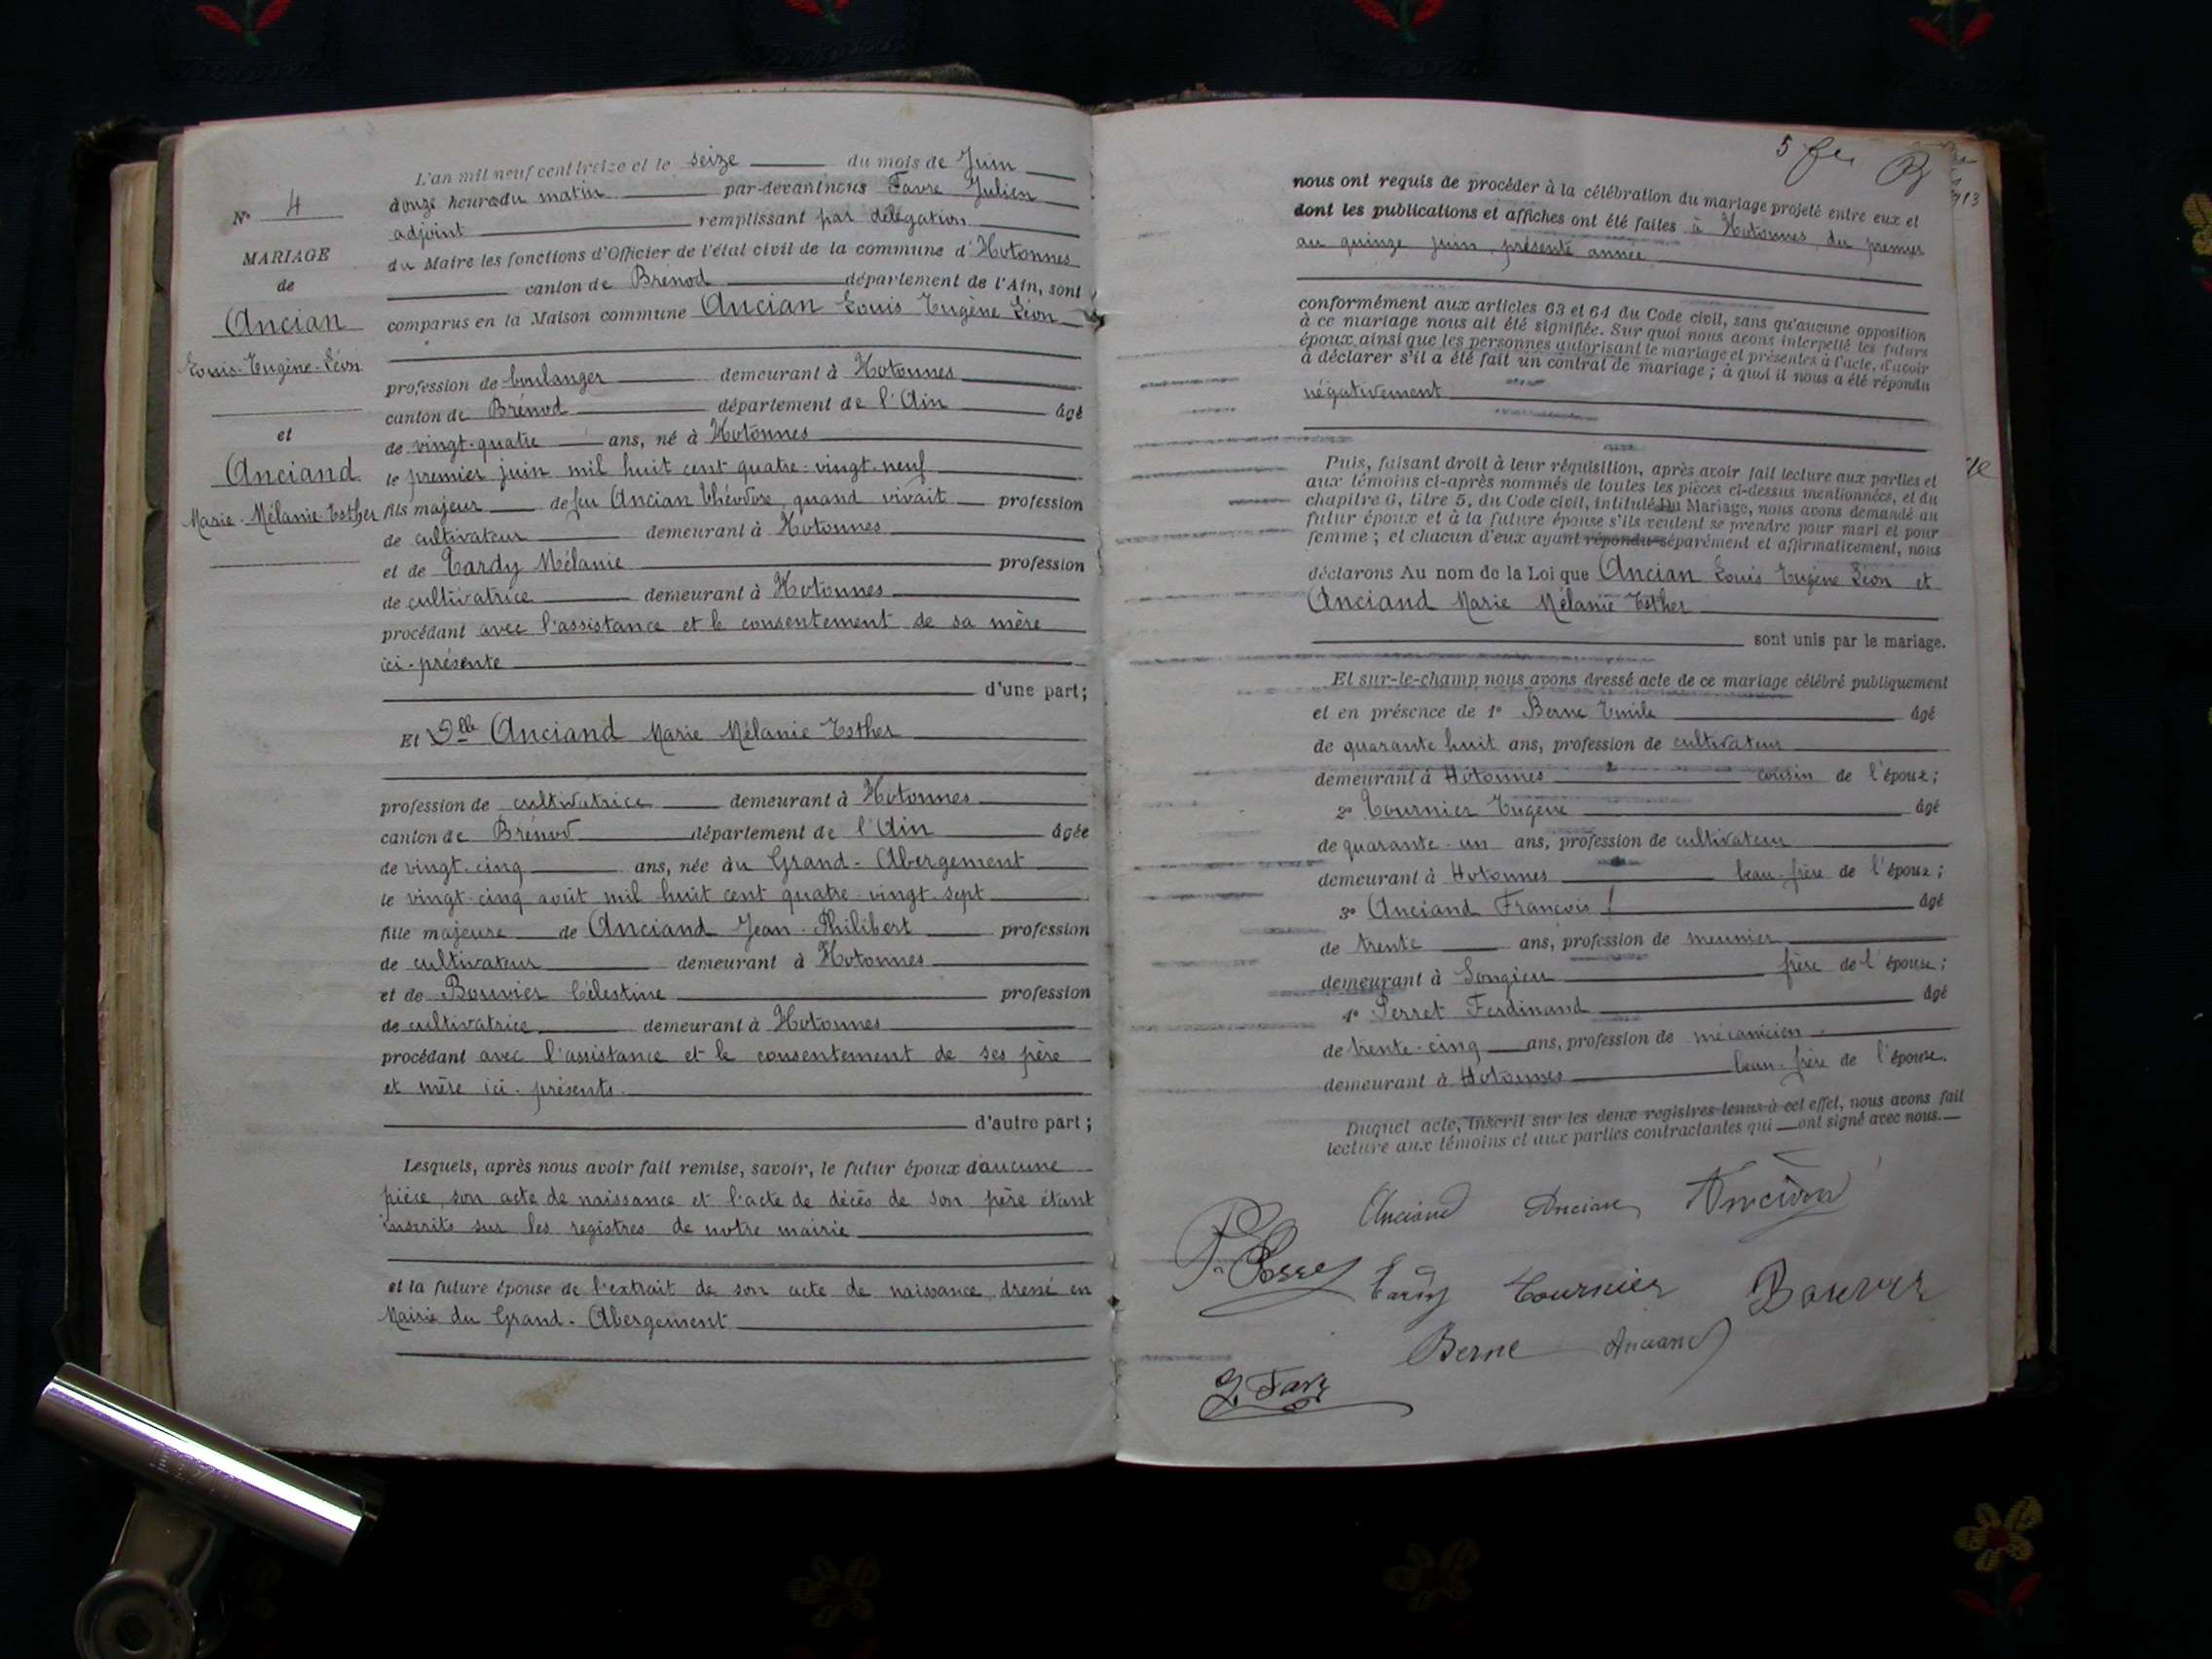 L'an mil neuf cent treize et le seize du mois de Juin
douze heures du matin par-devant nous Favre Julien
adjoint remplissant par délégation
du Maire les fonctions d'Officier de l'état civil de la commune d'Hotonnes
canton de Brénod département de l'Ain, sont
comparus en la Maison commune Ancian Louis Eugène Léon
profession de boulanger demeurant à Hotonnes
canton de Brénod département de l'Ain âgé
de vingt-quatre ans, né à Hotonnes
le premier juin mil huit cent quatre-vingt-neuf
fils majeur de feu Ancian Théodore, quand vivait profession
de cultivateur demeurant à Hotonnes
et de Tardy Mélanie profession
de cultivatrice demeurant à Hotonnes
procédant avec l'assistance et le consentement de sa mère
ici-présente
d'une part;
Et Dlle Anciand Marie Mélanie Esther
profession de cultivatrice demeurant à Hotonnes
canton de Brénod département de l'Ain âgée
de vingt-cinq ans, née au Grand-Abergement
le vingt-cinq août mil huit cent quatre-vingt-sept
fille majeure de Anciand Jean-Philibert profession
de cultivateur demeurant à Hotonnes
et de Bouvier Célestine profession
de cultivatrice demeurant à Hotonnes
procédant avec l'assistance et le consentement de ses père
et mère ici-présents
d'autre part;
Lesquels, après nous avoir fait remise, savoir, le futur époux d'aucune
pièce, son acte de naissance et l'acte de décès de son père étant
inscrits sur les registres de notre mairie
et la future épouse de l'extrait de son acte de naissance, dressé en
Mairie du Grand-Abergement
N° 4
MARIAGE
de
Ancian
Louis-Eugène-Léon
et
Anciand
Marie-Mélanie-Esther
5
913
nous ont requis de procéder à la célébration du mariage projeté entre eux et
dont les publications et affiches ont été faites à Hotonnes, du premier
au quinze juin, présente année
conformément aux articles 63 et 64 du Code civil, sans qu'aucune opposition
à ce mariage nous ait été signifiée. Sur quoi nous avons interpellé les futurs
époux ainsi que les personnes autorisant le mariage et présentes à l'acte, d'avoir
à déclarer s'il a été fait un contrat de mariage; à quoi il nous a été répondu
négativement
Puis, faisant droit à leur réquisition, après avoir fait lecture aux parties et
aux témoins ci-après nommés de toutes les pièces ci-dessus mentionnées, et du
chapitre 6, titre 5, du Code civil, intitulé Du Mariage, nous avons demandé au
futur époux et à la future épouse s'ils veulent se prendre pour mari et pour
femme; et chacun d'eux ayant répondu séparément et affirmativement, nous
déclarons Au nom de la Loi que Ancian Louis Eugène Léon et
Anciand Marie Mélanie Esther
sont unis par le mariage.
Et sur-le-champ nous avons dressé acte de ce mariage célébré publiquement
et en présence de 1° Berne Emile âgé
de quarante huit ans, profession de cultivateur
demeurant à Hotonnes cousin de l'époux;
2° Tournier Eugène âgé
de quarante-un ans, profession de cultivateur
demeurant à Hotonnes beau-frère de l'époux;
3° Anciand François âgé
de trente ans, profession de meunier
demeurant à Songieu frère de l'épouse;
4° Perret Ferdinand âgé
de trente-cinq ans, profession de mécanicien
demeurant à Hotonnes beau-frère de l'épouse.
Duquel acte, inscrit sur les deux registres tenus à cet effet, nous avons fait
lecture aux témoins et aux parties contractantes qui ont signé avec nous.
Anciand Ancian Anciand
Tardy Tournier Bouvier
Berne Anciand
J. Favre